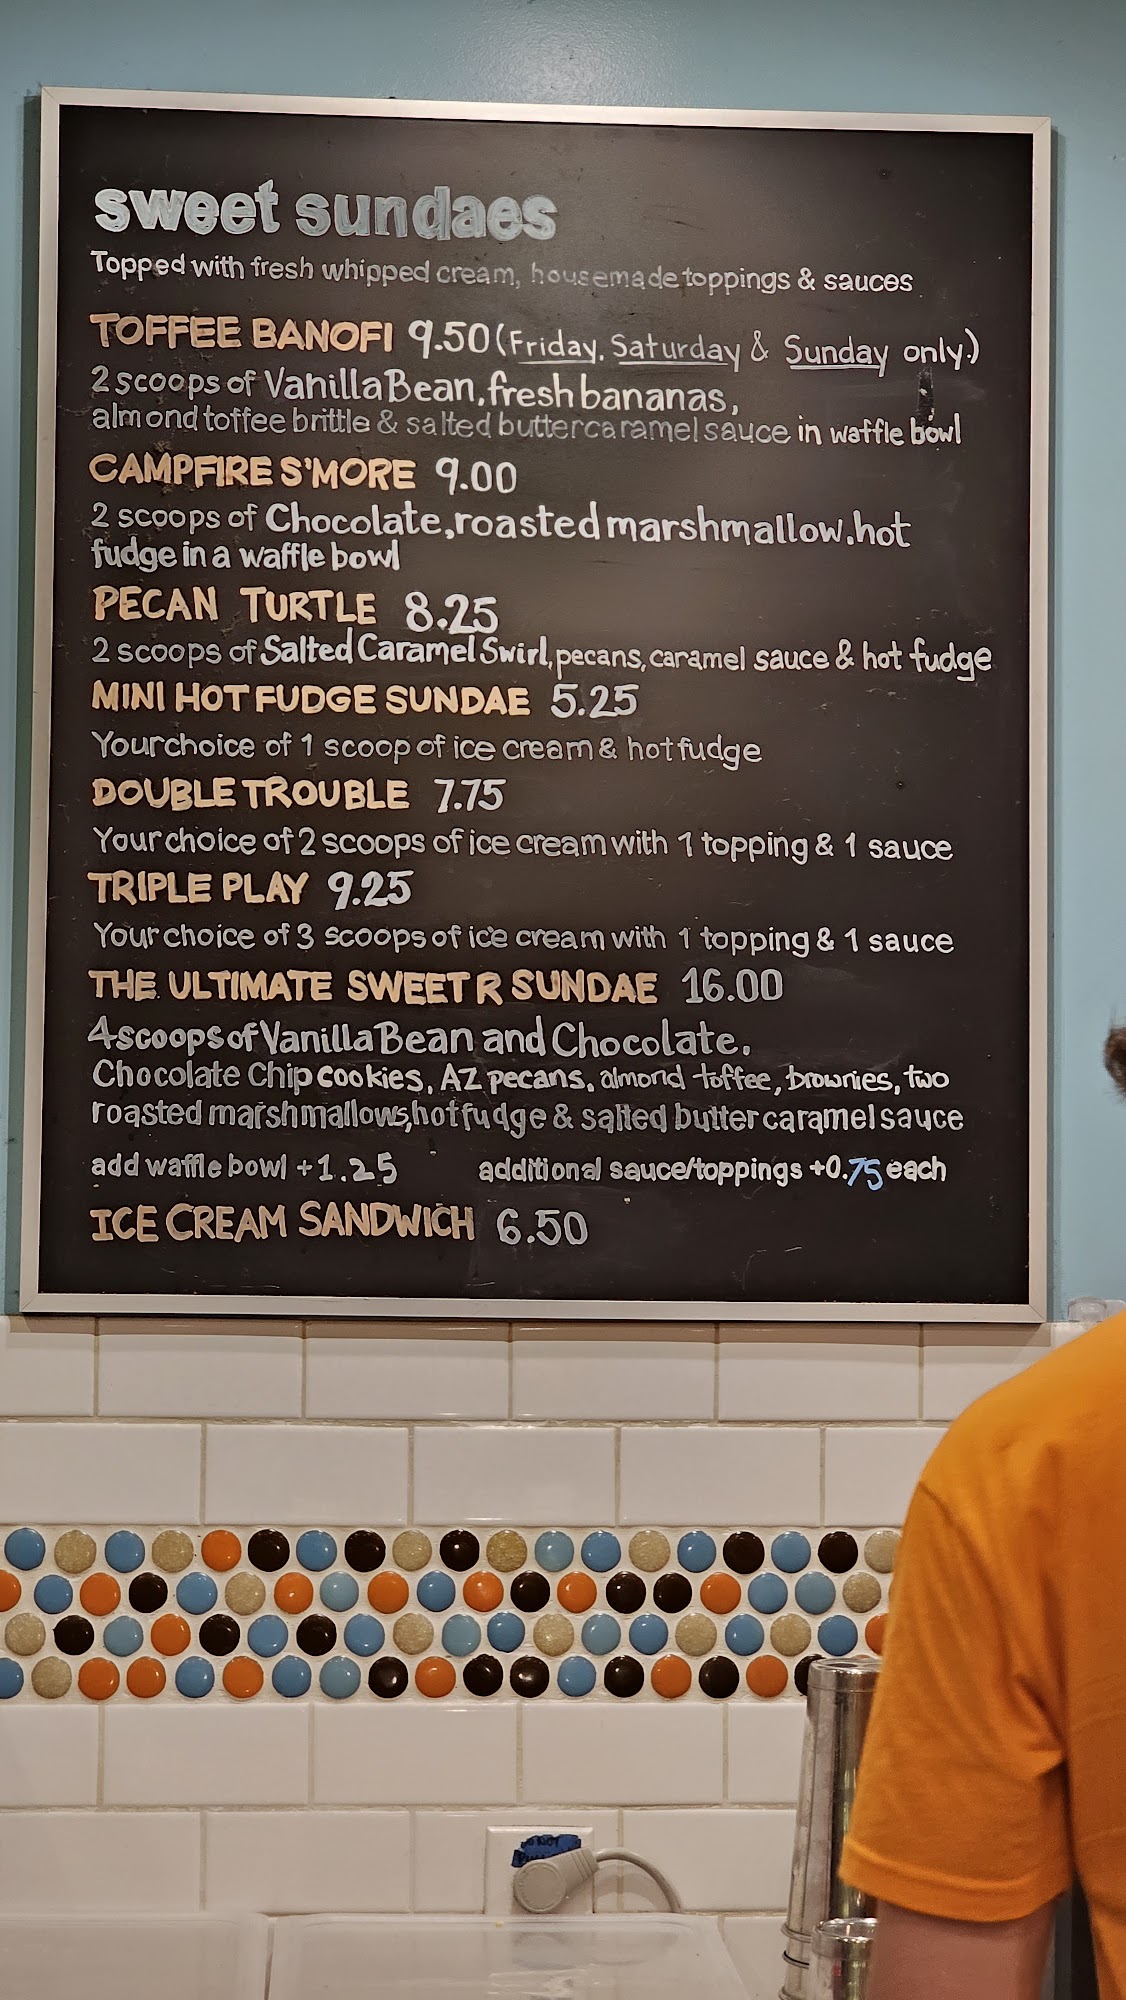 sweet sundaes
Topped with fresh whipped cream, housemade toppings & sauces
TOFFEE BANOFI 9.50 (Friday, Saturday & Sunday only.)
2 scoops of Vanilla Bean, fresh bananas,
almond toffee brittle & salted butter caramel sauce in waffle bowl
CAMPFIRE S'MORE 9.00
2 scoops of Chocolate, roasted marshmallow, hot
fudge in a waffle bowl
PECAN TURTLE 8.25
2 scoops of Salted Caramel Swirl, pecans, caramel sauce & hot fudge
MINI HOT FUDGE SUNDAE 5.25
Your choice of 1 scoop of ice cream & hot fudge
DOUBLE TROUBLE 7.75
Your choice of 2 scoops of ice cream with 1 topping & 1 sauce
TRIPLE PLAY 9.25
Your choice of 3 scoops of ice cream with 1 topping & 1 sauce
THE ULTIMATE SWEET R SUNDAE 16.00
4 scoops of Vanilla Bean and Chocolate.
Chocolate Chip cookies, AZ pecans, almond toffee, brownies, two
roasted marshmallows, hot fudge & salted butter caramel sauce
add waffle bowl +1.25 additional sauce/toppings +0.75 each
ICE CREAM SANDWICH 6.50
DO NOT